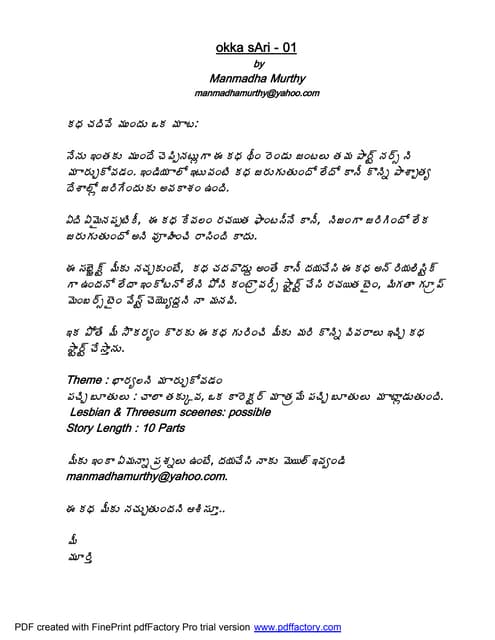 okka sAri - 01
by
Manmadha Murthy
manmadhamurthy@yahoo.com
కధ చదివే ముందు ఒక మాట:
నేను ఇంతకు ముందే చెప్పినట్లుగా ఈ కధ థీం రెండు జంటలు తమ పార్ట్ నర్స్ ని
మార్చుకోవడం. ఇండియాలో ఇటువంటి కధ జరుగుతుందో లేదో కానీ కొన్ని పాశ్చాత్య
దేశాల్లో జరిగేందుకు అవకాశం ఉంది.
ఏది ఏమైనప్పటికీ, ఈ కధ కేవలం రచయిత ఫాంటసీనే కానీ, నిజంగా జరిగిందో లేక
జరుగుతుందో అని వూహించి రాసింది కాదు.
ఈ సబ్జెక్ట్ మీకు నచ్చకుంటే, కధ చదవొద్దు అంతే కానీ దయచేసి ఈ కధ అన్ రియలిస్టిక్
గా ఉందనో లేదా ఇంకోటనో లేని పోని కంట్రొవర్సీ స్టార్ట్ చేసి రచయిత టైం, మిగతా గ్రూప్
మెంబర్స్ టైం వేస్ట్ చెయ్యొద్దని నా మనవి.
ఇక పోతే మీ సౌకర్యం కొరకు ఈ కధ గురించి మీకు మరి కొన్ని వివరాలు ఇచ్చి కధ
స్టార్ట్ చేస్తాను.
Theme : భార్యలని మార్చుకోవడం
పచ్చి బూతులు : చాలా తక్కువ, ఒక కారెక్టర్ మాత్రమే పచ్చి బూతులు మాట్లాడుతుంది.
Lesbian & Threesum sceenes: possible
Story Length : 10 Parts
మీకు ఇంకా ఏమన్నా ప్రశ్నలు ఉంటే, దయచేసి నాకు మెయిల్ ఇవ్వండి
manmadhamurthy@yahoo.com.
ఈ కధ మీకు నచ్చుతుందని ఆశిస్తూ..
మీ
మూర్తి
PDF created with FinePrint pdfFactory Pro trial version www.pdffactory.com